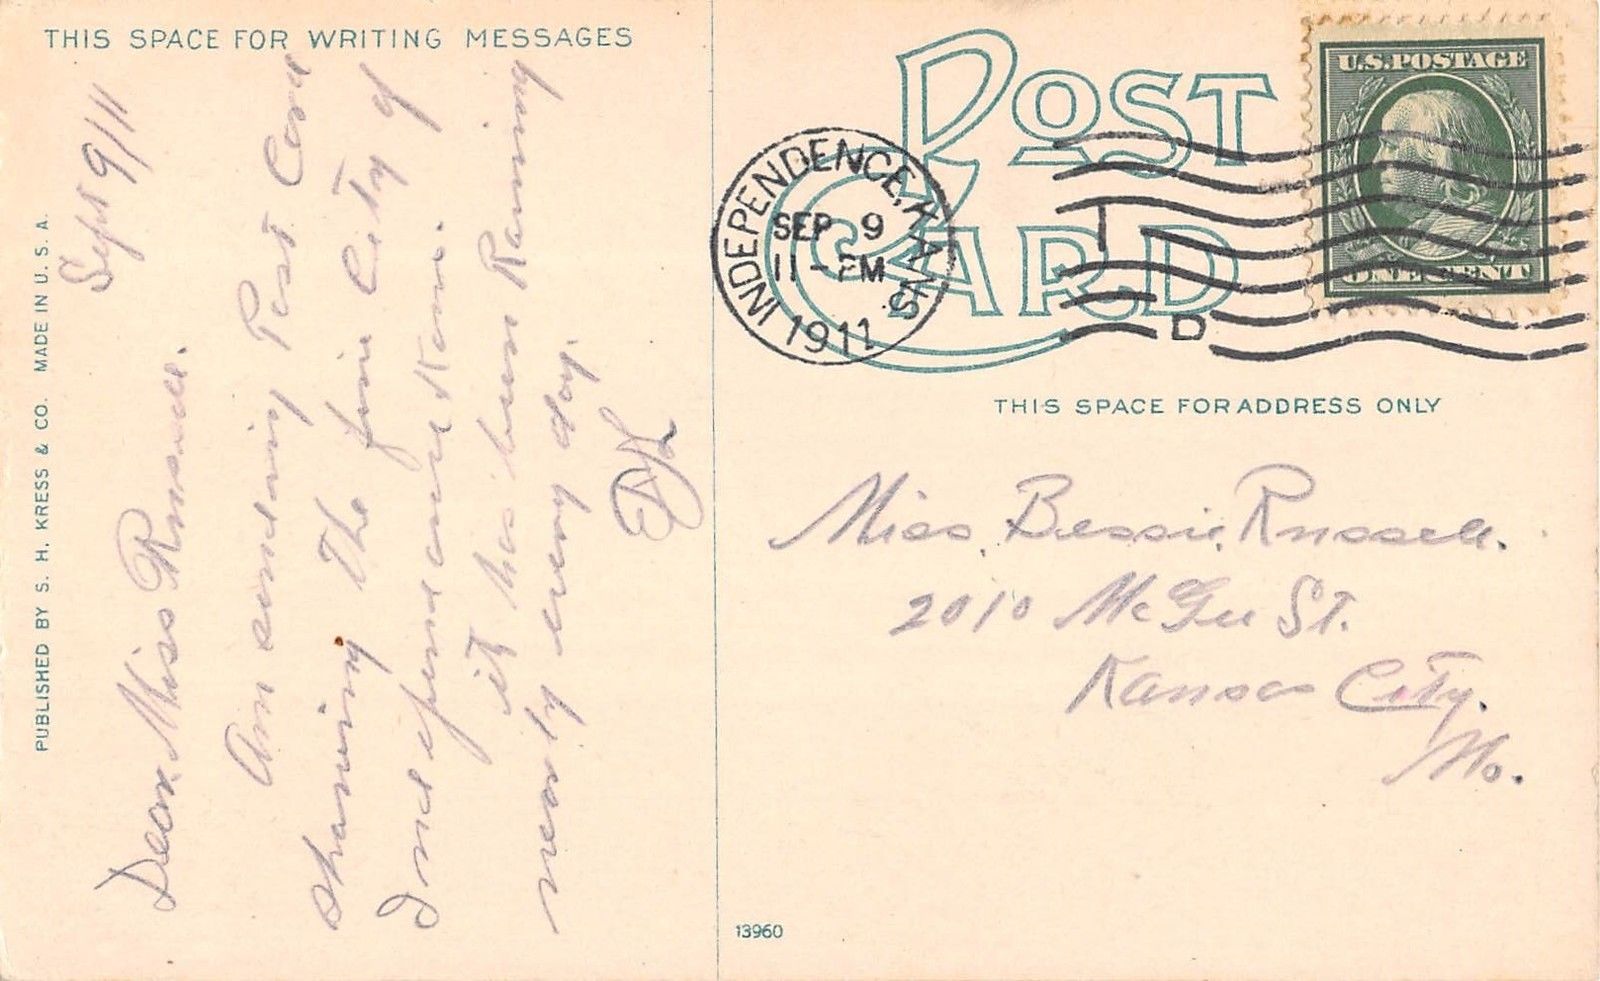 THIS SPACE FOR WRITING MESSAGES
Sept 9/11
Dear Miss Russell.
Am sending Post Card
showing The fine City of
Independence Kans.
it has been Raining
nearly every day.
PUBLISHED BY S. H. KRESS & CO. MADE IN U. S. A.
POST CARD
INDEPENDENCE, KANS.
SEP 9
11-PM
1911
D
U.S.POSTAGE
ONE CENT
THIS SPACE FOR ADDRESS ONLY
Miss, Bessie, Russell.
2010 McGee St.
Kansas City.
Mo.
13960